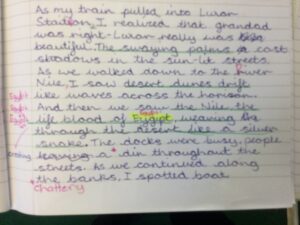 As my train pulled into Luxor
Station, I realized that grandad
was right-Luxor really was
beautiful. The swaying palms cast
shadows in the sun-lit streets.
As we walked down to the River
Nile, I saw desert dunes drift
like waves across the horizon.
Egypt And then we saw the Nile, the
Egypt life blood of Egyipt, weaving
Egypt through the desert like a silver
snake. The docks were busy, people
creating a din throughout the
streets. As we continued along
the banks, I spotted boat
Chattery